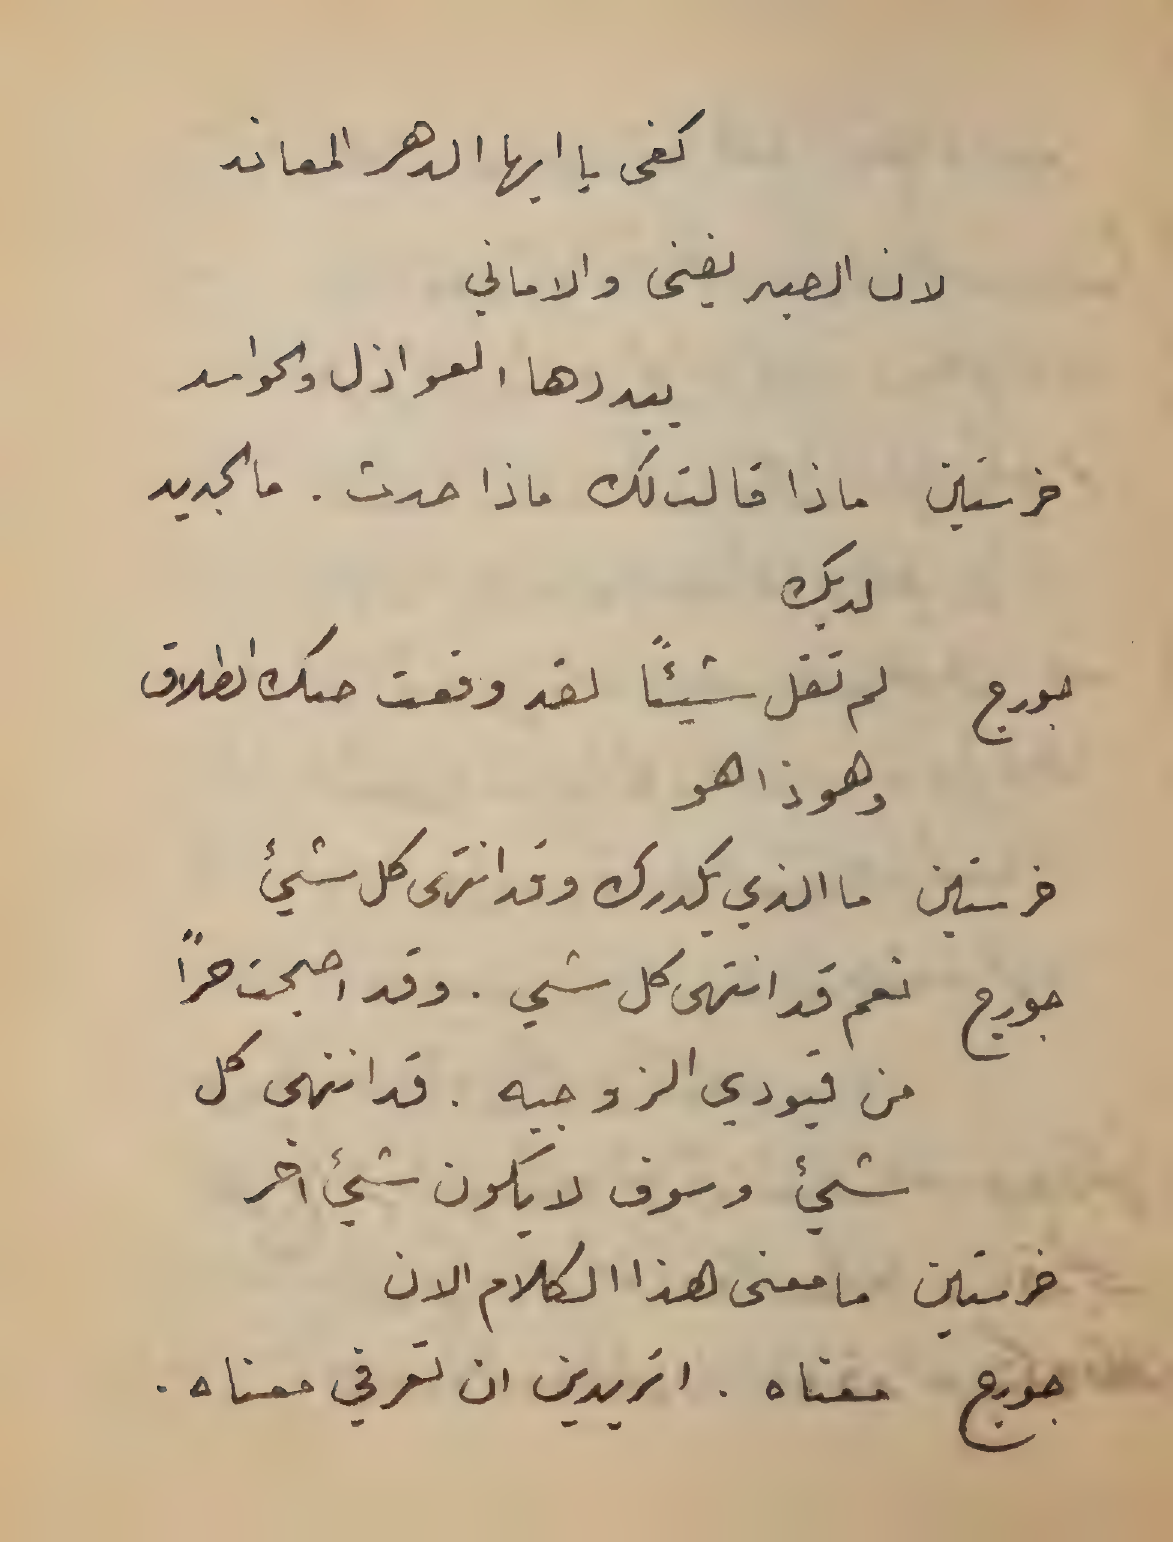 كفى يا ايها الدهر المعاند
لان الصبر يفنى والاماني
يبددها العواذل والحواسد
خرستين ماذا قالت لك ماذا حدث . ما الجديد
لديك
جورج لم تقل شيئًا لقد وقعت صك الطلاق
وهوذا هو
خرستين ما الذي يكدرك وقد انتهى كل شيئ
جورج نعم قد انتهى كل شي . وقد اصبحت حرًا
من قيودي الزوجيه . قد انتهى كل
شيئ وسوف لا يكون شيئ اخر
خرستين ما معنى هذا الكلام الان
جورج معناه . اتريدين ان تعرفي معناه .